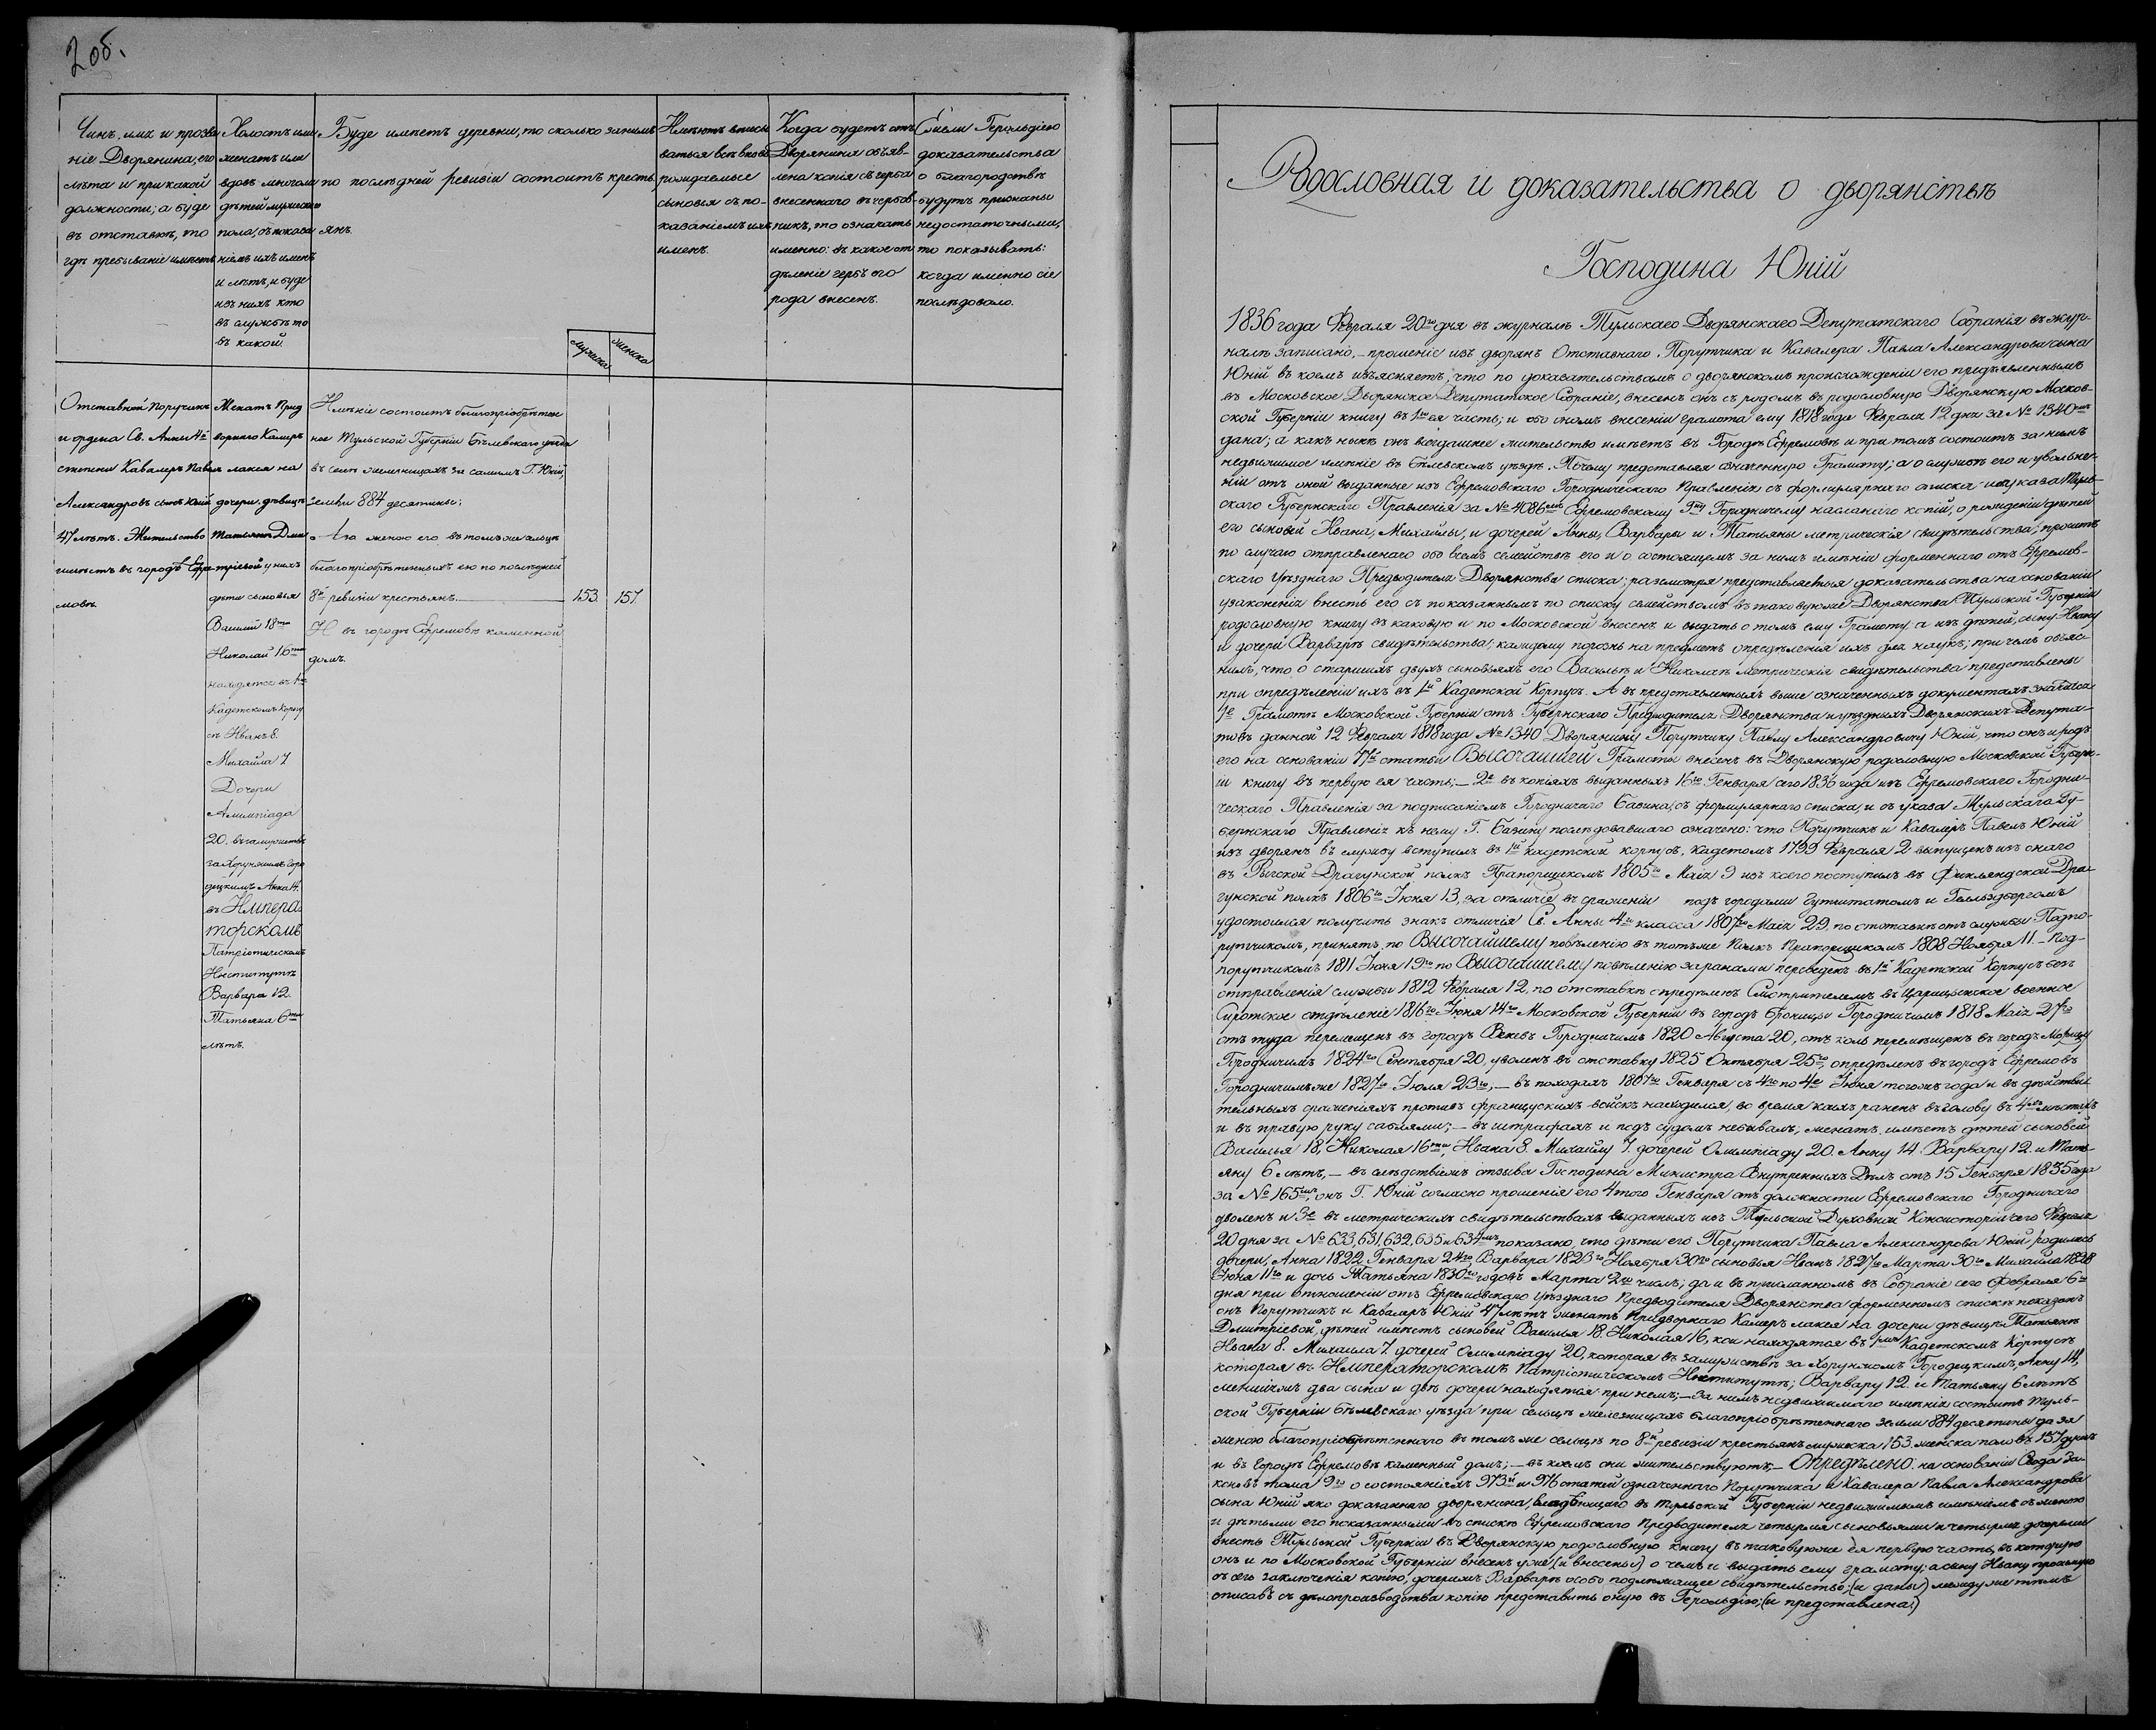 2 об.
Чинъ, имя и прозва
ніе Дворянина, его
лѣта и при какой
должности; а буде
въ отставкѣ, то
гдѣ пребываніе имѣетъ
Холостъ или
женатъ или
вдовъ многоли
дѣтей мужеска
пола, съ показа
ніемъ ихъ именъ
и лѣтъ, и буде
изъ нихъ кто
въ службѣ то
въ какой.
Буде имѣетъ деревни, то сколько за нимъ
по послѣдней ревизіи состоитъ кресть
янъ.
мужска
женска
Имѣютъ вписы
ваться всѣ вновь
рождаемые
сыновья съ по-
казаніемъ ихъ
именъ.
Когда будетъ отъ
Дворянина объяв-
лена копія съ герба
внесеннаго въ гербов
никъ, то означать
именно: въ какое от
дѣленіе гербъ его
рода внесенъ.
Если Герольдіею
доказательства
о благородствѣ
будутъ признаны
недостаточными,
то показывать:
когда именно сіе
послѣдовало.
Отставной Поручикъ
и ордена Св. Анны 4й
степени Кавалеръ Павелъ
Александровъ сынъ Юній
47 лѣтъ. Жительство
имѣетъ въ городѣ Ефре
мовѣ.
Женатъ Прид
ворнаго Камеръ
лакея на
дочери, дѣвицѣ
Татьянѣ Дми
тріевой у нихъ
дѣти сыновья
Василій 18ти
Николай 16ти
находятся въ 1мъ
Кадетскомъ Корпу
сѣ Иванъ 8.
Михайла 7
Дочери
Алимпіада
20. въ замужствѣ
за Хорунжимъ Горо
децкимъ Анна 14.
въ Импера
торскомъ
Патріотическомъ
Институтѣ
Варвара 12.
Татьяна 6ти
лѣтъ.
Имѣніе состоитъ благопріобрѣтен
ное Тульской Губерніи Бѣлевскаго уѣзда
въ селѣ железницахъ за самимъ Г. Юній,
земли 884 десятины;
А за женою его въ томъ же сельцѣ
благопріобрѣтенныхъ ею по послѣдней
8й ревизіи крестьянъ
153. 157.
И въ городѣ Ефремовѣ каменной
домъ.
Родословная и доказательства о дворянствѣ
Господина Юній
1836 года Февраля 20го дня въ журналѣ Тульскаго Дворянскаго Депутатскаго Собранія въ жур-
налѣ записано, – прошеніе изъ дворянъ Отставнаго Порутчика и Кавалера Павла Александрова сына
Юній въ коемъ изъясняетъ, что по доказательствамъ о дворянскомъ происхожденіи его предъявленнымъ
въ Московское Дворянское Депутатское Собраніе, внесенъ онъ съ родомъ въ родословную Дворянскую Москов-
ской Губерніи книгу въ 1ю ея часть; и объ ономъ внесеніи грамота ему 1818 года Февраля 12 дня за № 1340мъ
дана; а какъ нынѣ онъ всегдашнее жительство имѣетъ въ Городѣ Ефремовѣ и при томъ состоитъ за нимъ
недвижимое имѣніе въ Бѣлевскомъ уѣздѣ. Почему представляя означенную Грамоту; а о службѣ его и увольне-
ніи отъ оной выданные изъ Ефремовскаго Городническаго Правленія съ формулярнаго списка и указа Туль-
скаго Губернскаго Правленія за № 4086мъ Ефремовскому Гну Городничему насланаго копій, о рожденіи дѣтей
его сыновей Ивана, Михайлы, и дочерей Анны, Варвары и Татьяны метрическія свидѣтельства; проситъ
по случаю отправленаго обо всемъ семействѣ его и о состоящемъ за нимъ имѣніи форменнаго отъ Ефремов-
скаго Уѣзднаго Предводителя Дворянства списка; разсмотря представляемыя доказательства на основаніи
узаконенія внесть его съ показаннымъ по списку семействомъ въ таковуюже Дворянства Тульской Губерніи
родословную книгу въ каковую и по Московской внесенъ и выдать о томъ ему Грамоту а изъ дѣтей, сыну Ивану
и дочери Варварѣ свидѣтельства; каждому порознь на предметъ опредѣленія ихъ для наукъ; при чемъ объяс-
нилъ, что о старшихъ двухъ сыновьяхъ его Васильѣ и Николаѣ метрическія свидѣтельства представлены
при опредѣленіи ихъ въ 1й Кадетской Корпусъ. А въ представленныхъ выше означенныхъ документахъ значится
1е Грамотѣ Московской Губерніи отъ Губернскаго Предводителя Дворянства и уѣздныхъ Дворянскихъ Депута-
товъ данной 12 Февраля 1818 года № 1340 Дворянину Порутчику Павлу Александровичу Юній, что онъ и родъ
его на основаніи 77й статьи Высочайшей Грамоты внесенъ въ Дворянскую родословную Московской Губерн-
іи книгу въ первую ея часть; – 2е въ копіяхъ выданныхъ 16го Генваря сего 1836 года изъ Ефремовскаго Городни-
ческаго Правленія за подписаніемъ Городничаго Базина, съ формулярнаго списка, и съ указа Тульскаго Гу-
бернскаго Правленія къ нему Г. Базину послѣдовавшаго означено: что Порутчикъ и Кавалеръ Павелъ Юній
изъ дворянъ въ службу вступилъ въ 1й кадетской корпусъ, кадетомъ 1799 Февраля 2 выпущенъ изъ онаго
въ Рижской Драгунской полкъ Прапорщикомъ 1805го Маія 9 изъ коего поступилъ въ Финляндской Дра-
гунской полкъ 1806го Іюня 13, за отличіе въ сраженіи подъ городами Гутштатомъ и Гельздбергомъ
удостоился получить знакъ отличія Св. Анны 4го класса 1807го Маія 29, по отставкѣ отъ службы Подпо-
рутчикомъ, принятъ, по Высочайшему повѣленію въ тотъ же Полкъ Прапорщикомъ 1808 Ноября 11. – Под-
порутчикомъ 1811 Іюня 19го по Высочайшему повѣленію за ранами переведенъ въ 1й Кадетской Корпусъ безъ
отправленія службы 1812 Февраля 12, по отставкѣ опредѣленъ Смотрителемъ въ Царицынское военное
Сиротское отдѣленіе 1816го Іюня 14го Московской Губерніи въ городъ Бронницы Городничимъ 1818 Маія 27го
отъ туда перемещенъ въ городъ Вяжскъ Городничимъ 1820 Августа 20, отъ коль перемѣщенъ въ городъ
Городничимъ 1824го Сентября 20, уволенъ въ отставку 1825 Октября 25го, опредѣленъ въ городъ Ефремовъ
Городничимъ же 1827го Іюля 23го; – въ походахъ 1807го Генваря съ 4го по 4е Іюня тогожъ года и въ дѣйстви-
тельныхъ сраженіяхъ противъ французскихъ войскъ находился, во время коихъ раненъ въ голову въ 4хъ мѣстахъ
и въ правую руку саблями; – въ штрафахъ и подъ судомъ небывалъ, женатъ, имѣетъ дѣтей сыновей
Василья 18, Николая 16ти, Ивана 8. Михайлу 7. дочерей Олимпіаду 20. Анну 14. Варвару 12. и Тать-
яну 6 лѣтъ, – въ слѣдствіемъ отзыва Господина Министра Внутреннихъ Дѣлъ отъ 15 Генваря 1835 года
за № 165мъ, онъ Г. Юній согласно прошенія его 4того Генваря отъ должности Ефремовскаго Городничаго
уволенъ и 3е въ метрическихъ свидѣтельствахъ выданныхъ изъ Тульской Духовной Консисторіи сего Февраля
20 дня за № 633, 631, 632, 635 и 634мъ показано, что дѣти его Порутчика Павла Александрова Юній, родились
дочери, Анна 1822 Генваря 24го, Варвара 1823го Ноября 30го сыновья Иванъ 1827го Марта 30го Михайла 1828
Іюня 11го и дочь Татьяна 1830го годовъ Марта 2го числъ; да и въ присланномъ въ Собраніе сего Февраля 6го
дня при отношеніи отъ Ефремовскаго Уѣзднаго Предводителя Дворянства форменномъ спискѣ показанъ
онъ Порутчикъ и Кавалеръ Юній 47 лѣтъ женатъ Придворнаго Камеръ лакея на дочери дѣвицѣ Татьянѣ
Дмитріевой, дѣтей имѣетъ сыновей Василья 18. Николая 16, кои находятся въ 1мъ Кадетскомъ Корпусѣ
Ивана 8. Михаила 7. дочерей Олимпіаду 20, которая въ замужствѣ за Хорунжимъ Городецкимъ, Анну 14,
которая въ Императорскомъ Патріотическомъ Институтѣ; Варвару 12. и Татьяну 6 лѣтъ
меншіежъ два сына и двѣ дочери находятся при немъ; – За нимъ недвижимаго имѣнія состоитъ Туль-
ской Губерніи Бѣлевскаго уѣзда при сельцѣ железницахъ благопріобрѣтеннаго земли 884 десятины да за
женою благопріобрѣтеннаго въ томъ же сельцѣ по 8й ревизіи крестьянъ мужеска 153. женска полов. 157 душъ
и въ Городѣ Ефремовѣ каменный домъ; – въ коемъ они жительствуютъ, – Опредѣлено: на основаніи Свода За-
коновъ тома 9го о состояніяхъ 973й и 976 статей означеннаго Порутчика и Кавалера Павла Александрова
сына Юній яко доказаннаго дворянина, владѣющаго въ Тульской Губерніи недвижимымъ имѣніемъ съ женою
и дѣтьми его показанными въ спискѣ Ефремовскаго Предводителя четырмя сыновьями и четырмя дочерьми
внесть Тульской Губерніи въ Дворянскую родословную книгу въ таковуюже ея первую часть, въ которую
онъ и по Московской Губерніи внесенъ уже (и внесены) о чемъ и выдать ему грамоту; а сыну Ивану прописную
съ сего заключенія копію, дочеримъ Варварѣ особо подлежащее свидѣтельство; (и даны) между же тѣмъ
списавъ съ дѣлопроизводства копію представить оную въ Герольдію; (и представлена.)